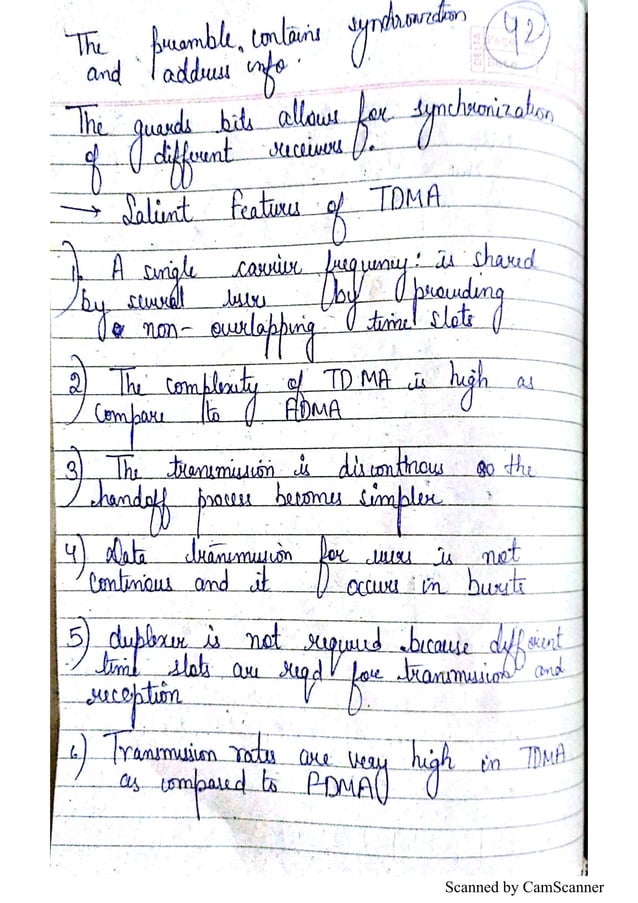 The preamble, contains synchronization
and address info.
42
The guards bits allows for synchronization
of different receivers.
→ Salient features of TDMA
1) A single carrier frequency is shared
by several users by providing
non-overlapping time slots
2) The complexity of TDMA is high as
compare to FDMA
3) The transmission is discontinous so the
handoff process becomes simpler
4) Data transmission for users is not
continious and it occurs in bursts
5) duplexer is not required because different
time slots are reqd for transmission and
reception
6) Transmission rates are very high in TDMA
as compared to FDMA
Scanned by CamScanner